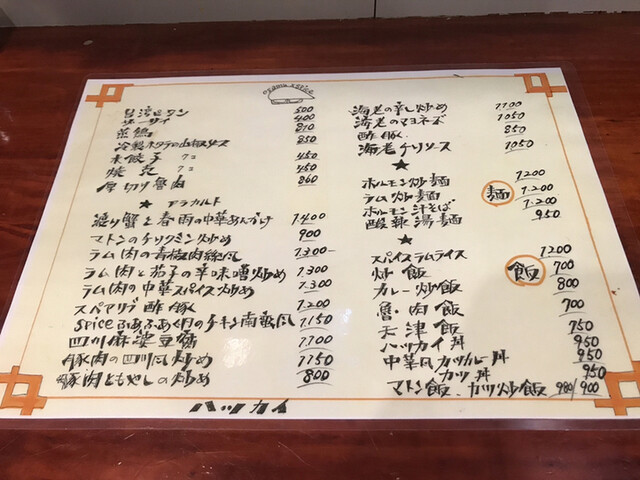 台湾ピータン 500
ザーサイ 400
蒸鶏 810
850
水餃子 7コ 450
焼売 7コ 450
厚切り魯肉 860
★ アラカルト
渡り蟹と春雨の中華あんかけ 1.400
マトンのチリクミン炒め 900
ラム肉の青椒肉絲風 1.300
ラム肉と茄子の辛味噌炒め 1.300
ラム肉の中華スパイス炒め 1.300
スペアリブ酢豚 1.200
1.150
四川麻婆豆腐 1100
豚肉の四川風炒め 1150
豚肉ともやしの炒め 800
海老の辛し炒め 1100
海老のマヨネーズ 1050
酢豚 850
海老チリソース 1050
★
麺
ホルモン炒麺 1200
ラム炒麺 1.200
ホルモン汁そば 1.200
酸辣湯麺 950
★
飯
スパイスラムライス 1200
炒飯 700
カレー炒飯 800
魯肉飯 700
天津飯 750
ハッカイ丼 950
中華風カツカレー丼 950
カツ丼 950
マトン飯、カツ炒飯 980/900
ハッカイ